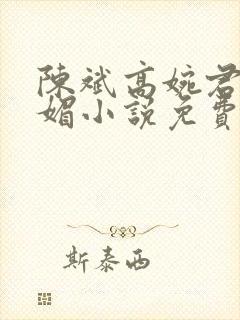 陳斌高婉君
媚小說免費
斯泰西